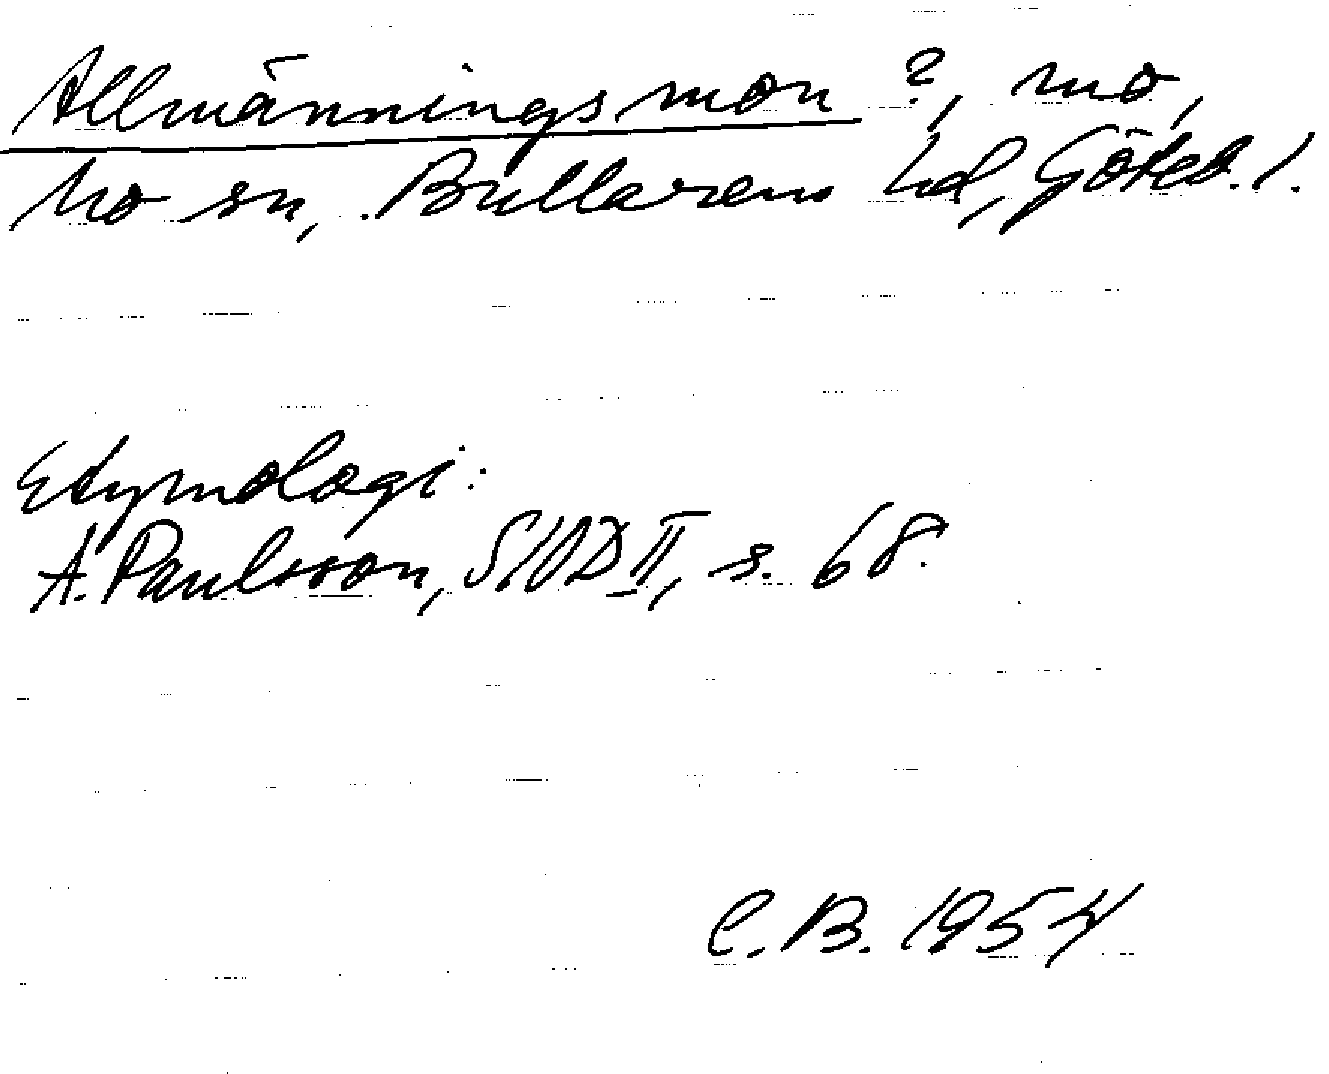 Allmänningsmon ?, mo,
Mo sn, Bullarens hd, Göteb. l.
Etymologi:
A. Paulsson, SIOD II, s. 68.
C. B. 1954